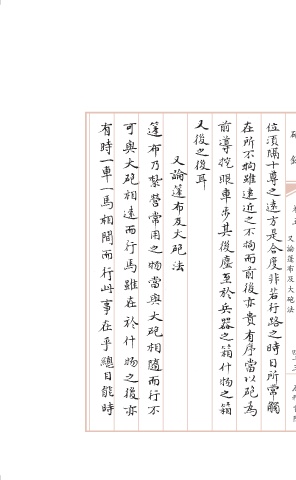 位須隔十尋之遠方是合度非若行路之時日所常觸
在所不拘雖遠近之不拘而前後亦貴有序當以砲為
前導挖眼車步其後塵至於兵器之箱什物之箱
又後之後耳
又論篷布及大砲法
篷布乃紮營常用之物當與大砲相隨而行不
可與大砲相遠而行馬雖在於什物之後亦
有時一車一馬相間而行此事在乎總目能時
又論篷布及大砲法